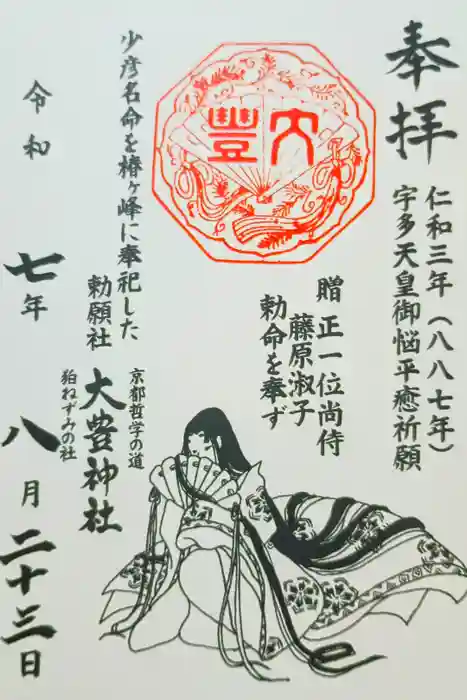 奉拝
仁和三年（八八七年）
宇多天皇御悩平癒祈願
贈 正一位尚侍
藤原淑子
勅命を奉ず
大豊
少彦名命を椿ヶ峰に奉祀した
勅願社
京都哲学の道
大豊神社
狛ねずみの社
令和 七年 八月 二十三日